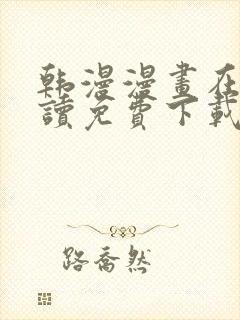 韩漫漫畫在
讀免費下載
路喬然